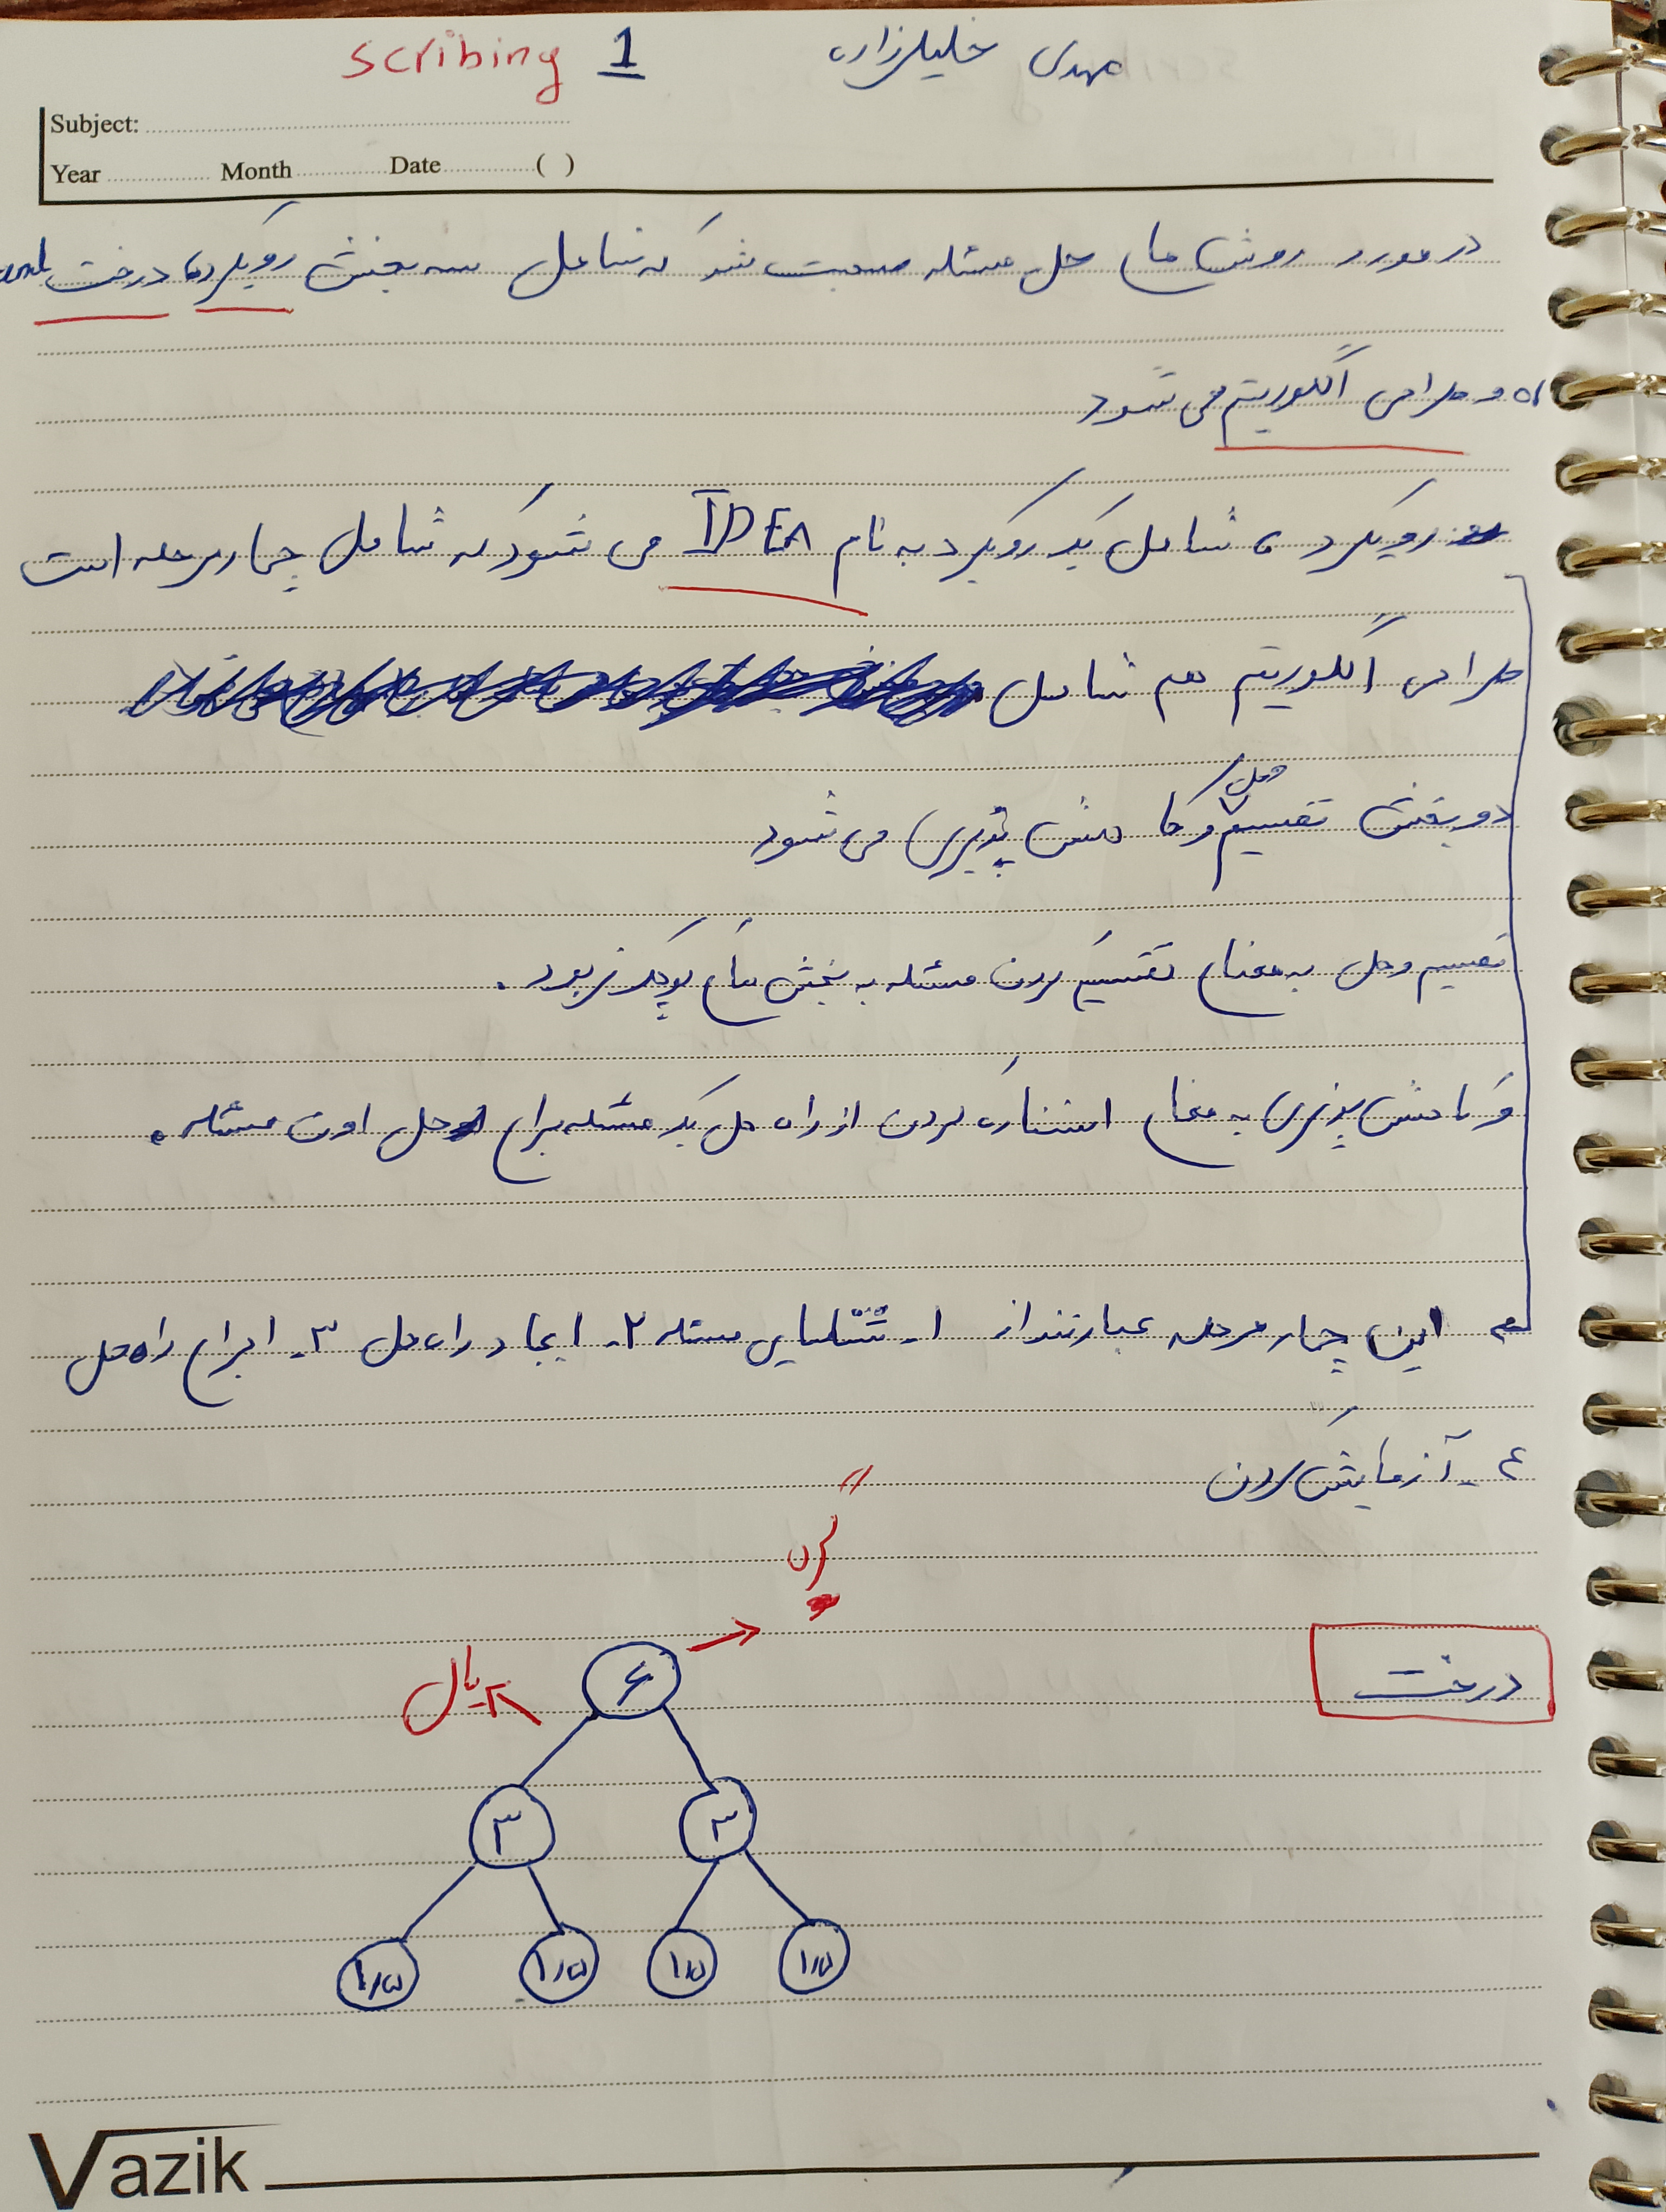 scribing 1 مهدی خلیلزاده
Subject:
Year Month Date ( )
در مورد روش های حل مسئله صحبت شد که شامل سه بخش رویکردها درخت
و طراحی الگوریتم می شود
رویکرد ها شامل یک رویکرد به نام IDEA می شود که شامل چهار مرحله است
طراحی الگوریتم هم شامل
دو بخش تقسیم و حل و کاهش پذیری می شود
تقسیم و حل به معنای تقسیم کردن مسئله به بخش های کوچک تر بود.
و کاهش پذیری به معنای استفاده کردن از راه حل یک مسئله برای حل اون مسئله.
این چهار مرحله عبارتند از ۱- شناسایی مسئله ۲- ایجاد راه حل ۳- اجرای راه حل
۴- آزمایش کردن
گره
درخت
یال
۶
۳ ۳
۱٫۵ ۱٫۵ ۱٫۵ ۱٫۵
Vazik